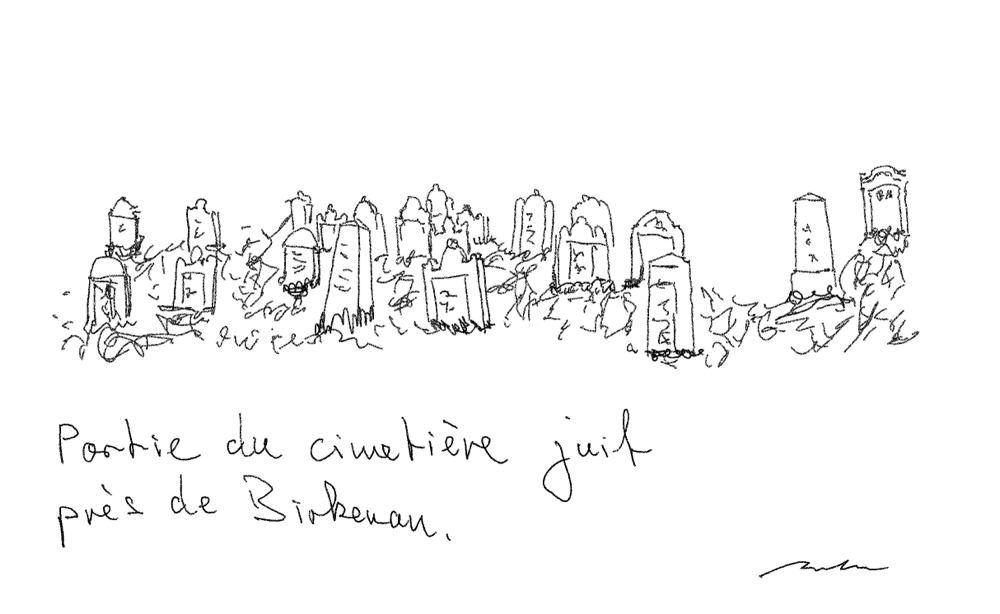 Partie du cimetière juif
près de Birkenau.